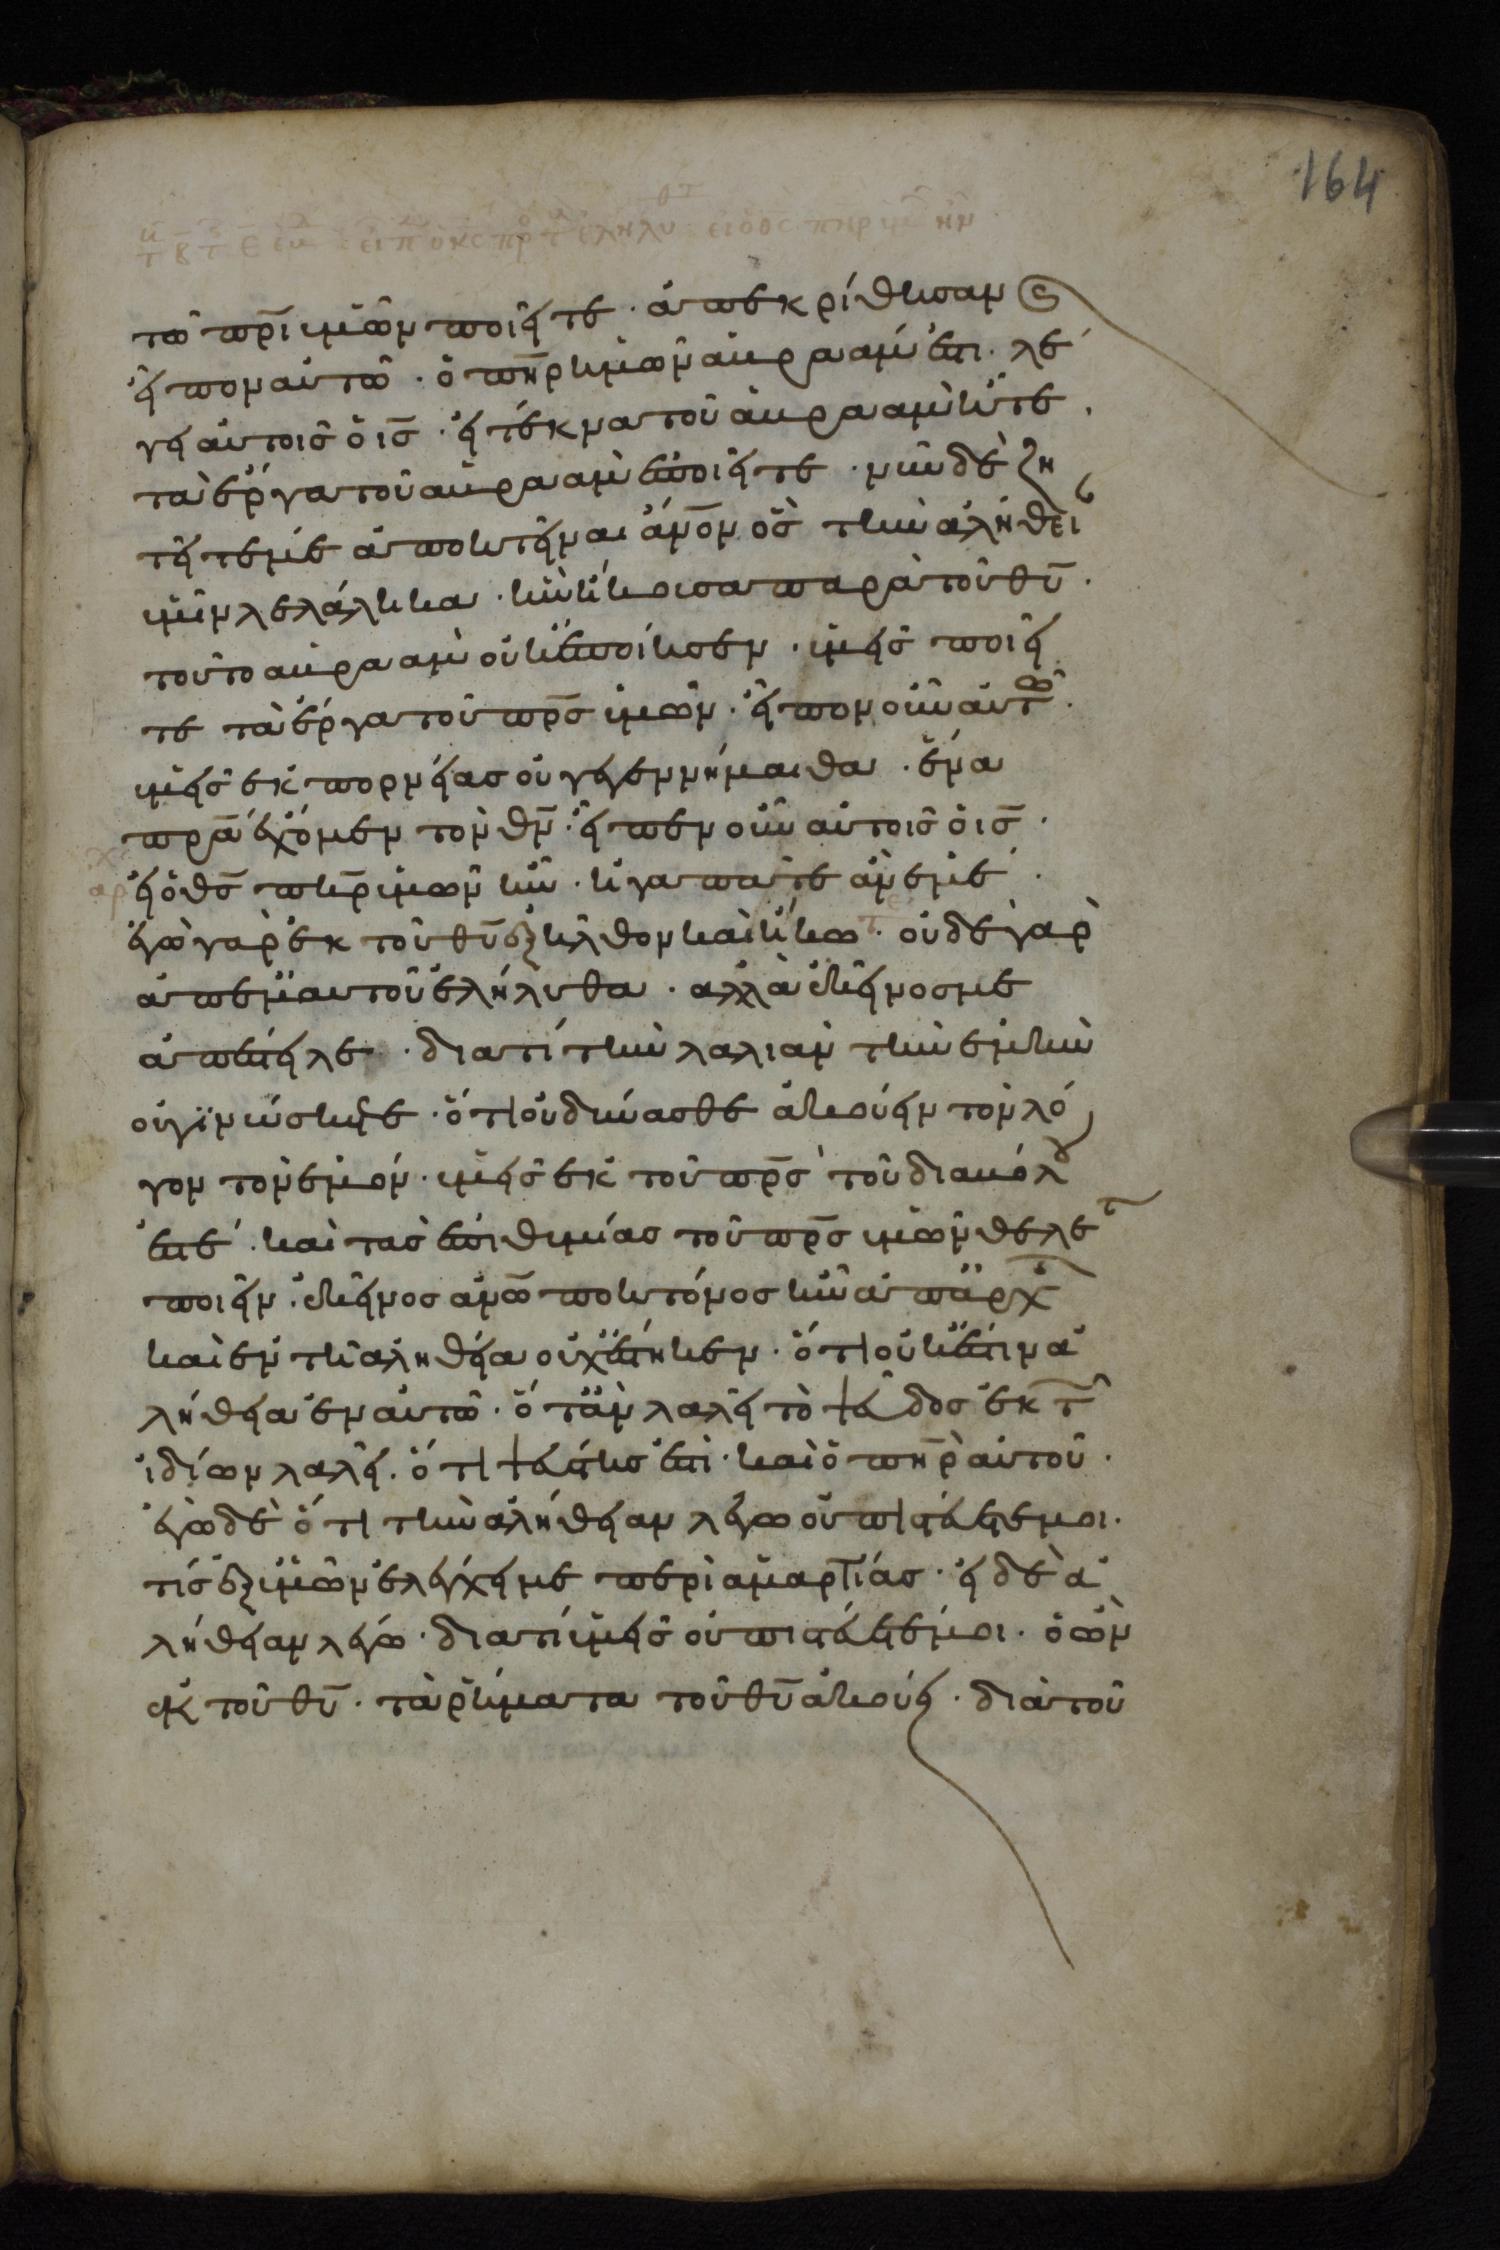 164
τῶ πρ̅ι ὑμῶν ποιεῖτε · ἀπεκρίθησαν (ς)
εἶπον αὐτῶ · ὁ πη̅ρ ἡμῶν ἀβρααμ ἐστι · λέ
γει αὐτοῖς ὁ ι̅ς · εἰ τέκνα τοῦ ἀβρααμ ἦτε ·
τὰ ἔργα τοῦ ἀβρααμ ἐποιεῖτε · νῦν δὲ ζη
τεῖτέ με ἀποκτεῖναι ἄν̅ον ὃς τὴν ἀλήθει
ὑμῖν λελάληκα · ἣν ἤκουσα παρὰ τοῦ θ̅υ ·
τοῦτο ἀβρααμ οὐκ ἐποίησεν · ὑμεῖς ποιεῖ
τε τὰ ἔργα τοῦ πρ̅ς ὑμῶν · εἶπον οὖν αὐτῶ ·
ἡμεῖς ἐκ πορνείας οὐ γεγεννήμαιθα · ἕνα
πρ̅α ἔχομεν τὸν θ̅ν · εἶπεν οὖν αὐτοῖς ὁ ι̅ς ·
εἰ ὁ θ̅ς πη̅ρ ὑμῶν ἦν · ἠγαπᾶτε ἂν ἐμέ ·
ἐγὼ γὰρ ἐκ τοῦ θ̅υ ἐξῆλθον καὶ ἥκω · οὐδὲ γὰρ
ἀπεμαυτοῦ ἐλήλυθα · ἀλλὰ ἐκεῖνος με
ἀπέστειλε · διατί τὴν λαλιὰν τὴν ἐμὴν
οὐ γϊνώσκετε · ὅτι οὐ δύνασθε ἀκούειν τὸν λό
γον τὸν ἐμόν · ὑμεῖς ἐκ τοῦ πρ̅ς τοῦ διαβόλου
ἐστέ · καὶ τὰς ἐπιθυμίας τοῦ πρ̅ς ὑμῶν θέλετ
ποιεῖν · ἐκεῖνος ἀν̅ο̅κτόνος ἦν ἀπ ἀρχ
καὶ ἐν τῆ ἀληθεία οὐχ ἕστηκεν · ὅτι οὐκ ἔστιν ἀ
λήθεια ἐν αὐτῶ · ὅταν λαλεῖ τὸ ψεῦδος ἐκ τ
ἰδίων λαλεῖ · ὅτι ψεύστης ἐστὶ · καὶ ὁ πη̅ρ αὐτοῦ ·
ἐγὼ δὲ ὅτι τὴν ἀλήθειαν λέγω οὐ πιστεύετέ μοι ·
τίς ἐξ ὑμῶν ἐλέγχει με περὶ ἁμαρτίας · εἰ δὲ ἀ
λήθειαν λέγω · διατί ὑμεῖς οὐ πιστεύετέ μοι · ὁ ὢν
ἐκ τοῦ θ̅υ · τὰ ῥήματα τοῦ θ̅υ ἀκούει · διὰ τοῦ